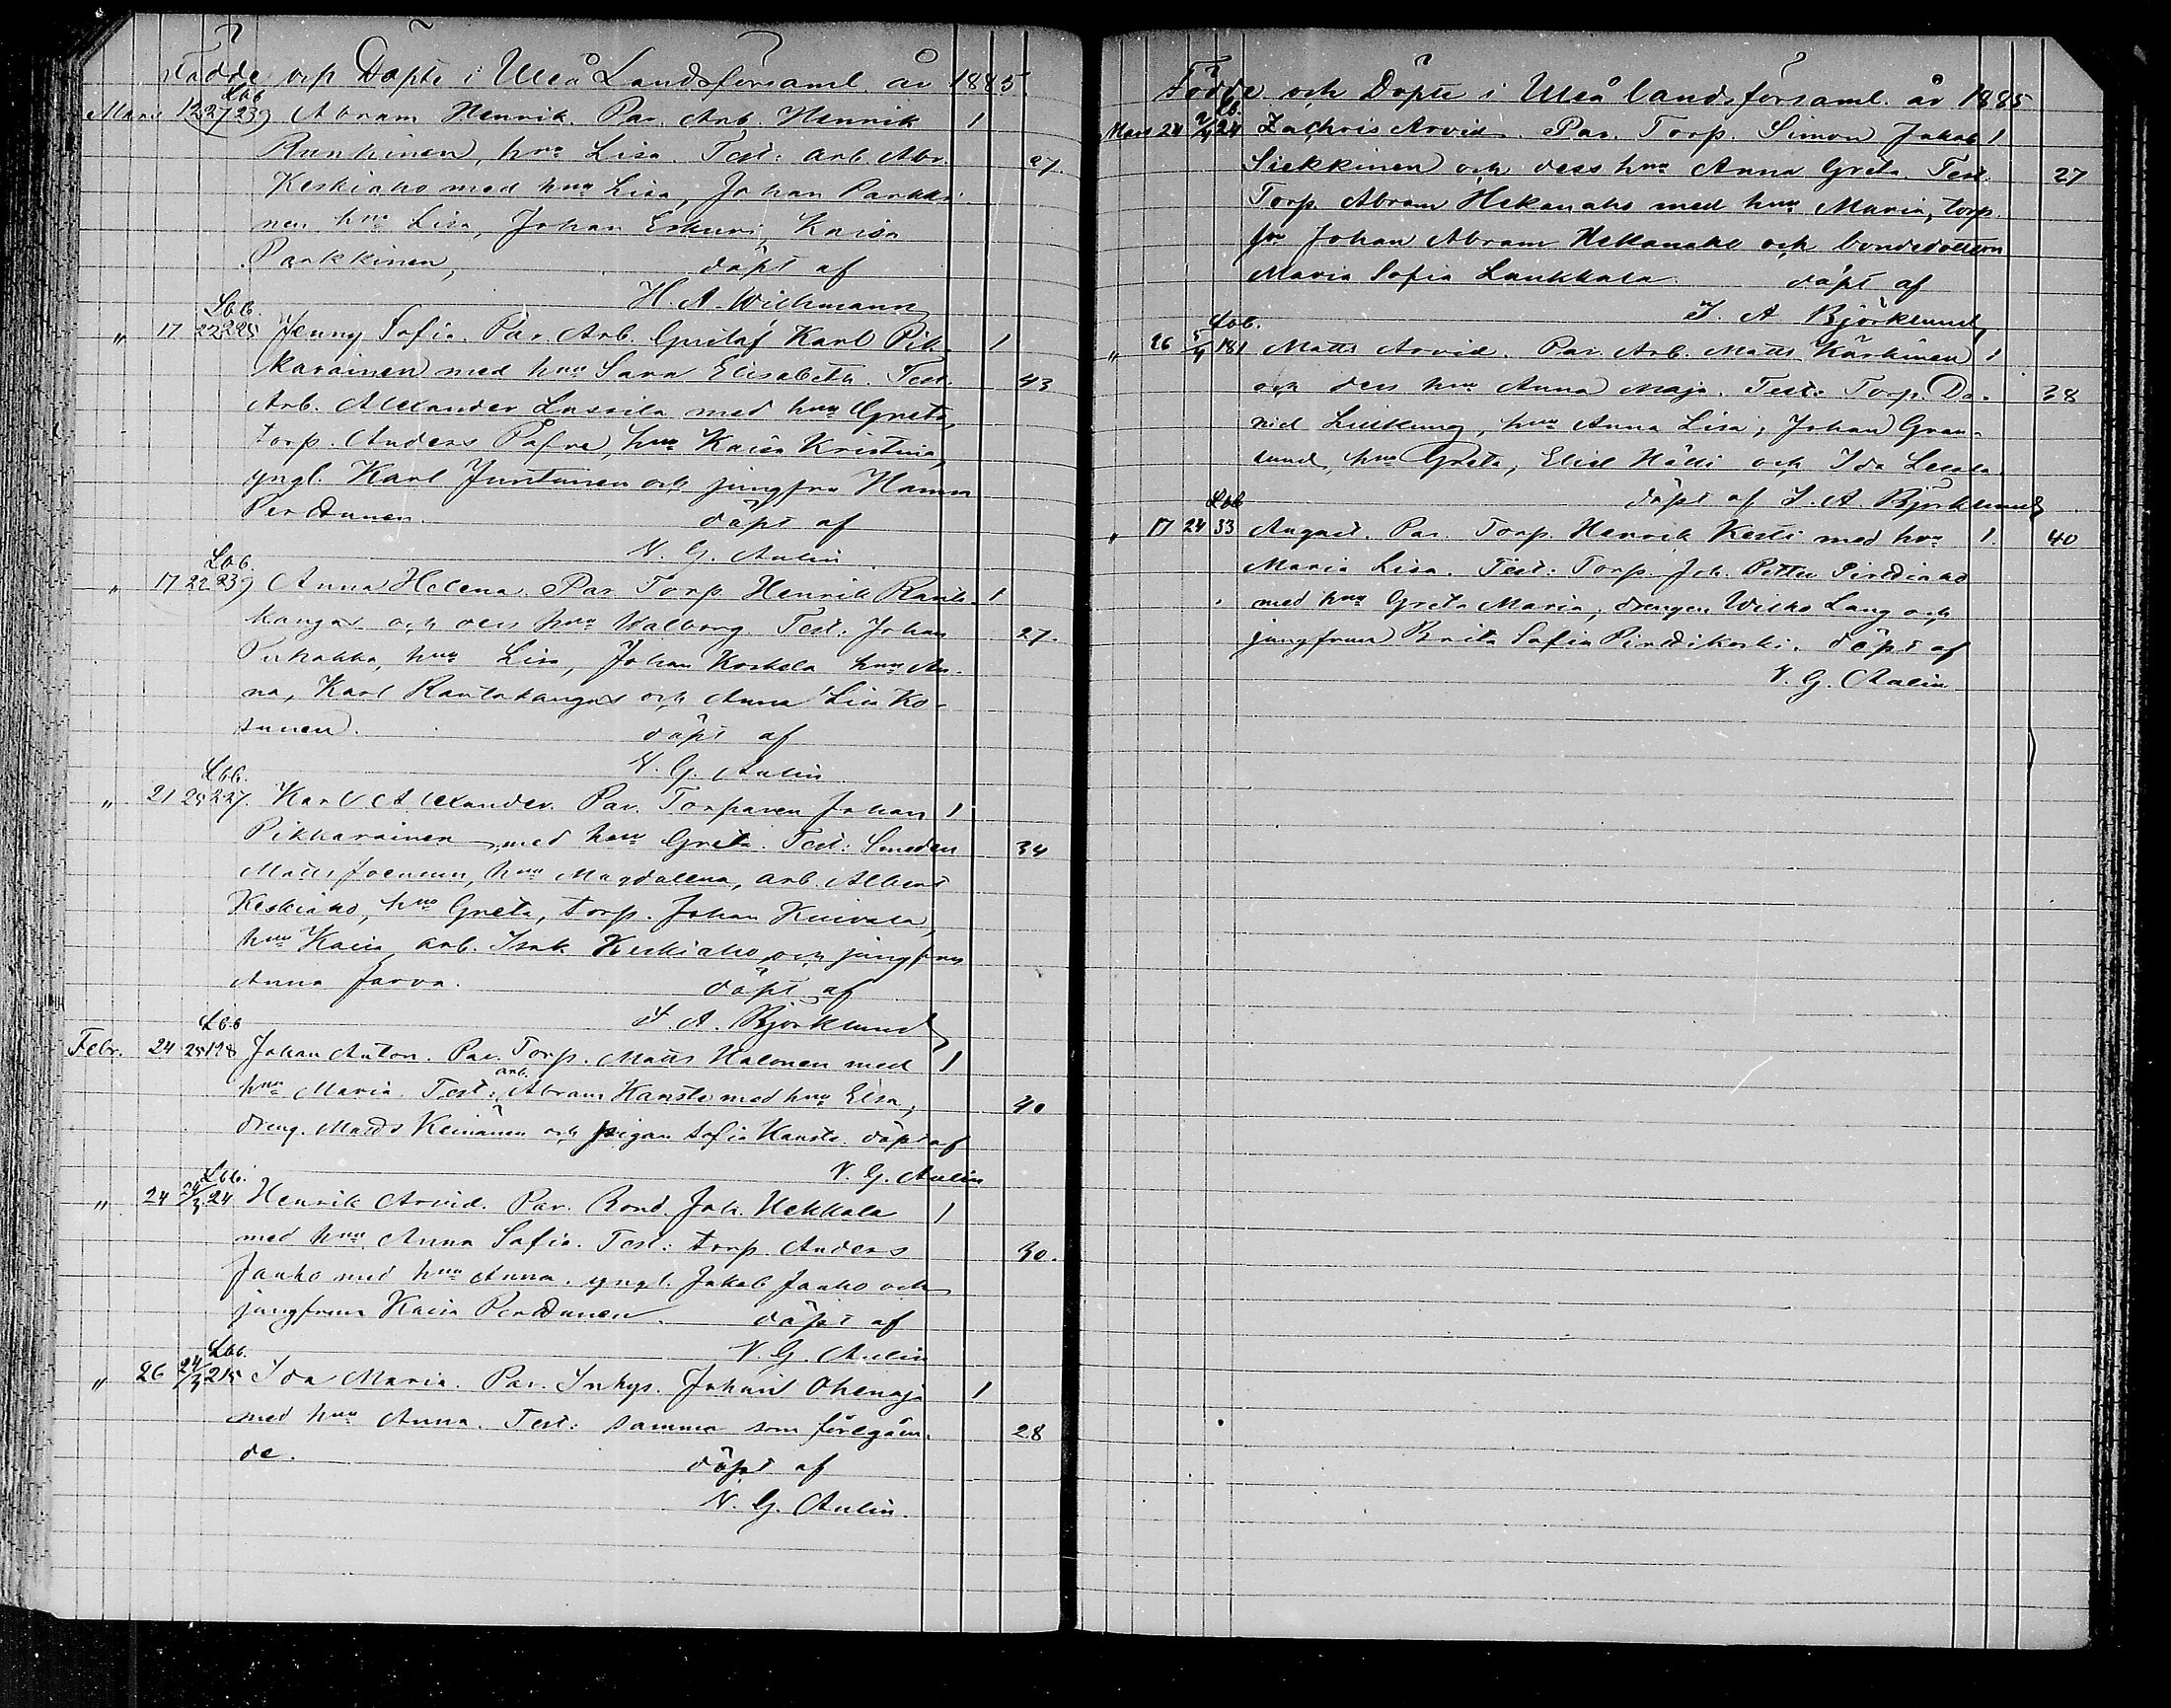 Födde och Döpte i Uleå Landsförsaml. år 1885.
Lbb.
Mars 12 22 239 Abram Henrik. Par. Arb. Henrik 1
Runkinen, hru Lisa. Test: arb. Abr. 27.
Keskiaho med hru Lisa, Johan Parkki-
nen hru Lisa, Johan Eskuri, Kaisa
Parkkinen, döpt af
H. A. Wichmann
Lbb.
" 17 22 225 Jenny Sofia. Par. Arb. Gustaf Karl Pik- 1
karainen med hru Sara Elisabeth. Test. 43
Arb. Alexander Lassila med hru Greta,
torp. Anders hru Kaisa Kristina,
yngl. Karl Juntunen och jungfru Hanna
Perttunen. döpt af
N. G. Aulin.
Lbb.
" 17 22 239 Anna Helena. Par. Torp. Henrik Rauta- 1
kangas och dess hru Walborg. Test. Johan 27.
hru Lisa, Johan Koskela hru An-
na, Karl Rautakangas och Anna Lisa Ko-
sunen. döpt af
N. G. Aulin
Lbb.
" 21 25 227. Karl Alexander. Par. Torparen Johan 1
Pikkarainen med hru Greta. Test: Smeden 34
Matts Joensuu, hru Magdalena, arb. Albert
Keskiaho, hru Greta, torp. Johan Kuivala,
hru Kaisa, arb. Isak Keskiaho och jungfrun
Anna Jarva. döpt af
J. A. Björklund
Lbb
Febr. 24 25 198 Johan Anton. Par. Torp. Matts Halonen med 1
hru Maria. Test: arb. Abram Hanste med hru Elsa, 40
dreng. Matts Keinänen och pigan Sofia Hanste. döpt af
N. G. Aulin
Lbb.
" 24 24/3 24 Henrik Arvid. Par. Bond. Joh. Hekkala 1
med hru Anna Sofia. Test: torp. Anders 30.
Jaako med hru Anna, yngl. Jakob Jaako och
jungfrun Kaisa Perttunen. döpt af
N. G. Aulin
Lbb.
" 26 24/3 215 Ida Maria. Par. Inhys. Johan Ohenoja 1
med hru Anna. Test: samma som föregåen- 28
de. döpt af
N. G. Aulin.
Födde och Döpte i Uleå landsförsaml. år 1885
Lb.
Mars 24 2/4 24 Zachris Arvid. Par. Torp. Simon Jakob 1
Siekkinen och dess hru Anna Greta. Test. 27
Torp. Abram Hekanaho med hru Maria, torp.
son Johan Abram Hekanaho och bondedottern
Maria Sofia Laukkala. döpt af
J. A Björklund
Lbb.
" 26 5/4 181 Matts Arvid. Par. Arb. Matts Kärkinen 1
och dess hru Anna Maja. Test: Torp. Da- 38
niel hru Anna Lisa, Johan Gran-
lund, hru Greta, Elsi Hätti och Ida
döpt af J. A. Björklund
Lbb
" 17 24 33 August. Par. Torp. Henrik Kesti med hru 1. 40
Maria Lisa. Test: Torp. Joh. Petter Pirttiaho
med hru Greta Maria, drengen Wilho Lang och
jungfrun Brita Sofia Pirttikoski. döpt af
N. G. Aulin